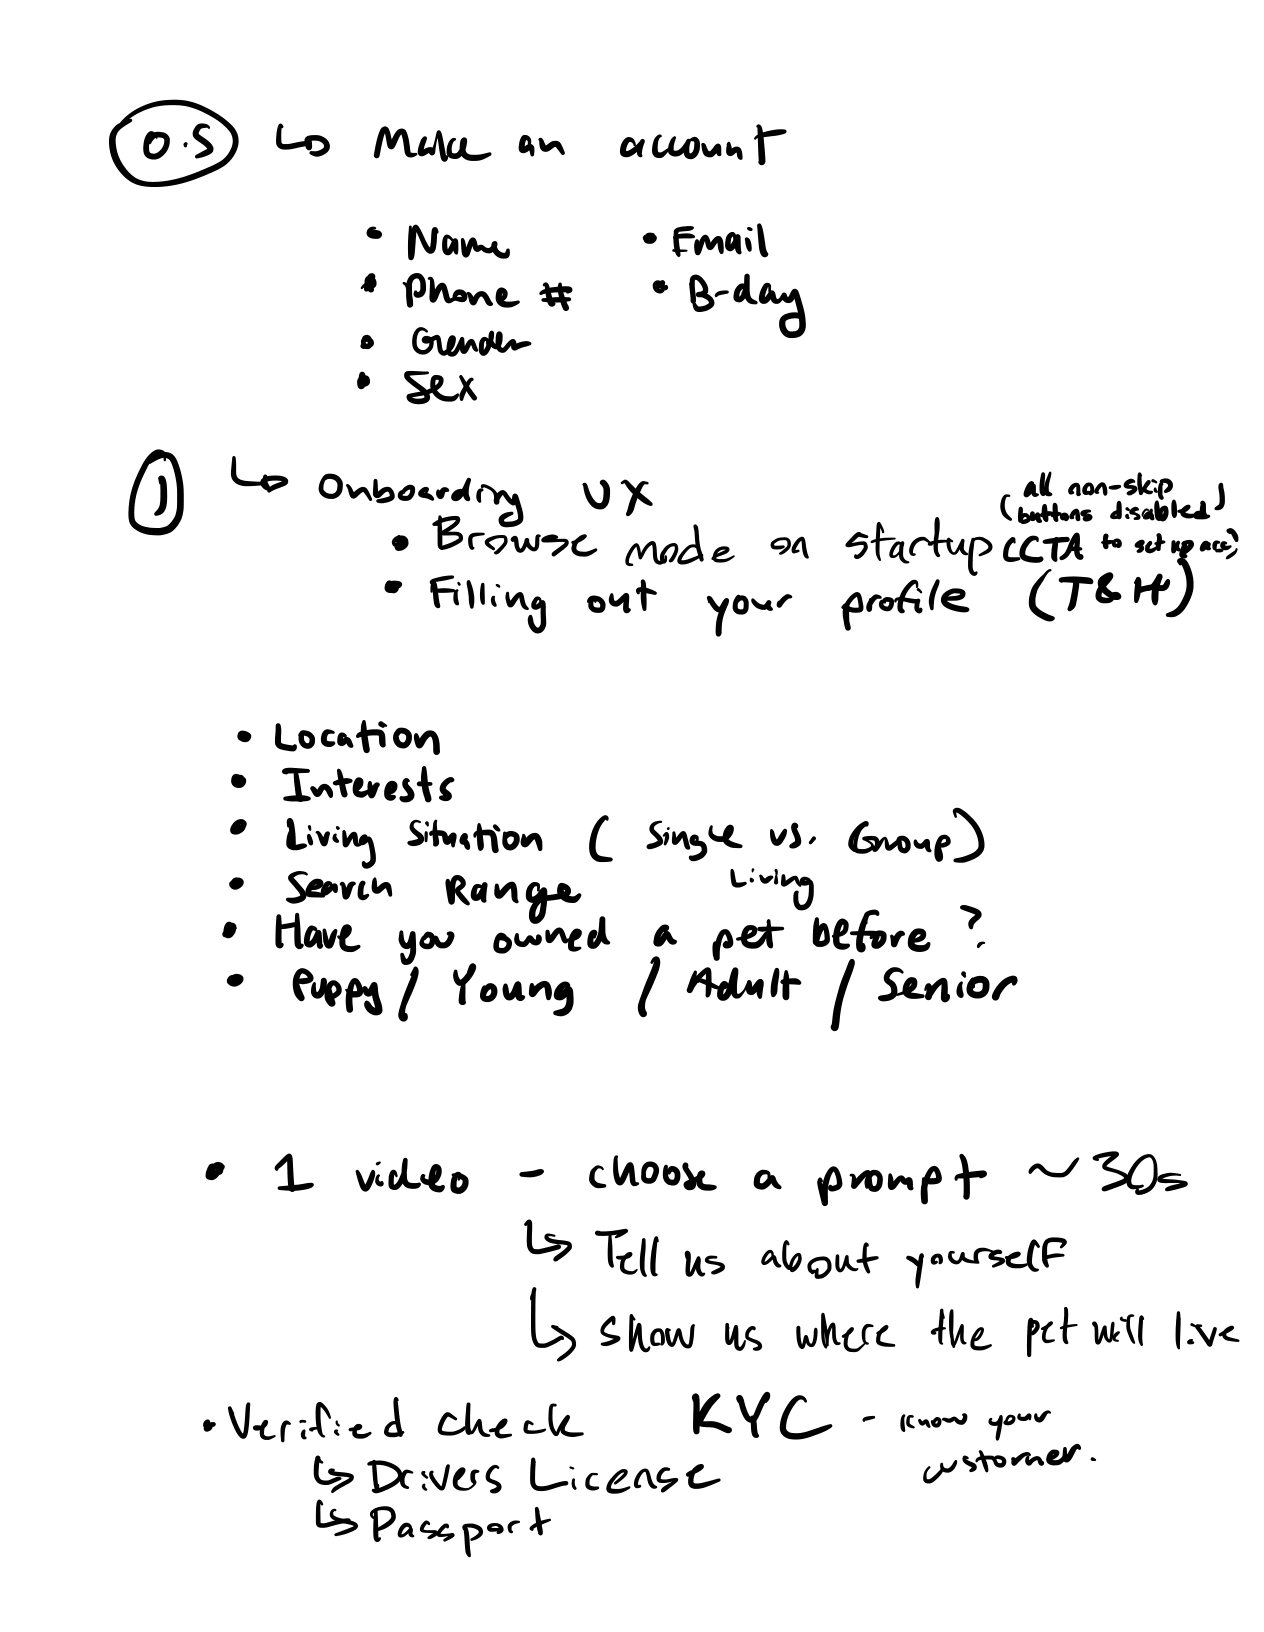 0.5 ↳ Make an account
• Name • Email
• Phone # • B-day
• Gender
• Sex
1) ↳ Onboarding UX
(all non-skip
buttons disabled)
• Browse mode on startup (CTA to set up acc)
• Filling out your profile (T&H)
• Location
• Interests
• Living Situation (Single vs. Group)
Living
• Search Range
• Have you owned a pet before?
• Puppy / Young / Adult / Senior
• 1 video - choose a prompt ~30s
↳ Tell us about yourself
↳ Show us where the pet will live
• Verified check KYC - know your
customer.
↳ Drivers License
↳ Passport